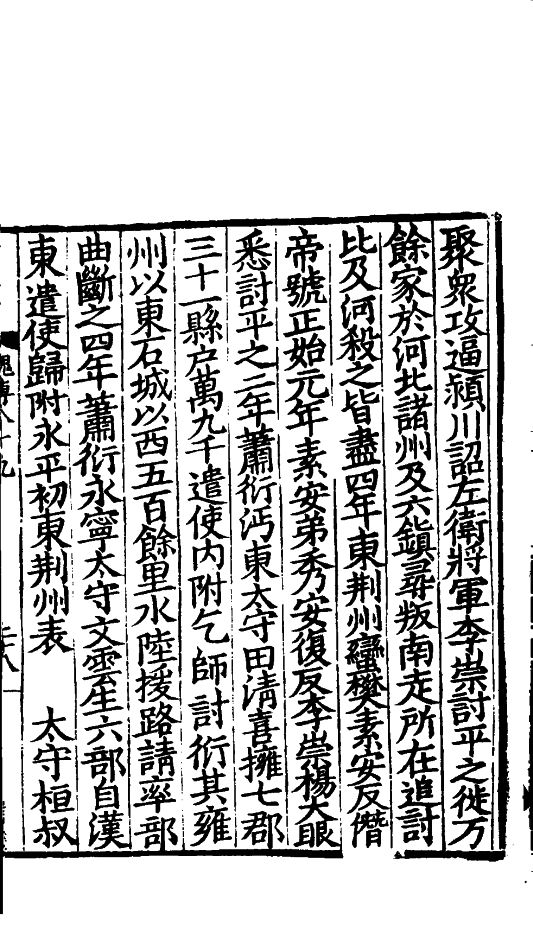 聚衆攻逼潁川詔左衛將軍李崇討平之徙万
餘家於河北諸州及六鎮尋叛南走所在追討
比及河殺之皆盡四年東荆州蠻樊素安反僭
帝號正始元年素安弟秀安復反李崇楊大眼
悉討平之二年蕭衍沔東太守田清喜擁七郡
三十一縣戶萬九千遣使内附乞師討衍其雍
州以東石城以西五百餘里水陸援路請率部
曲斷之四年蕭衍永寧太守文雲生六部自漢
東遣使歸附永平初東荆州表　太守桓叔